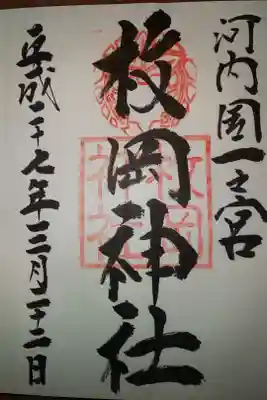 河内国一之宮
枚岡神社
平成二十七年三月二十二日
枚岡
神社